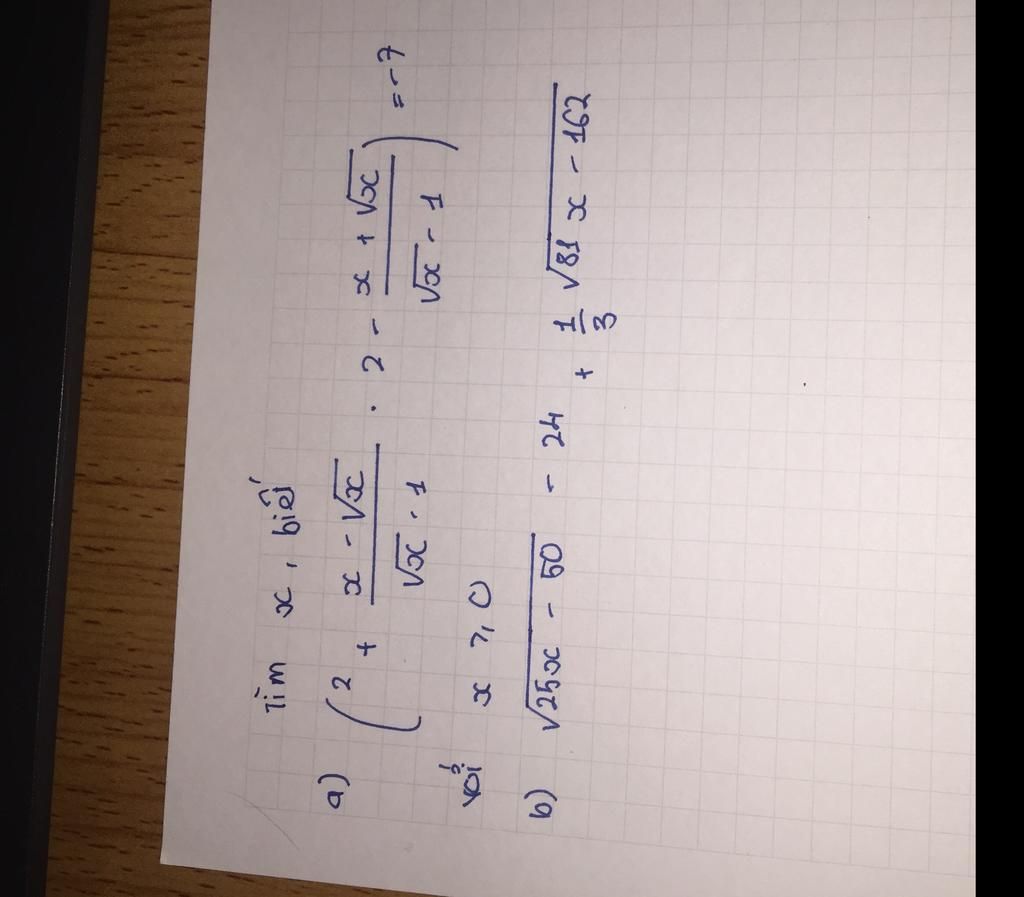 Tìm x, biết
a) (2 + \frac{x - \sqrt{x}}{\sqrt{x} - 1} . 2 - \frac{x + \sqrt{x}}{\sqrt{x} - 1}) = -7
với x ≥ 0
b) \sqrt{25x - 50} - 24 + \frac{1}{3} \sqrt{81x - 162}